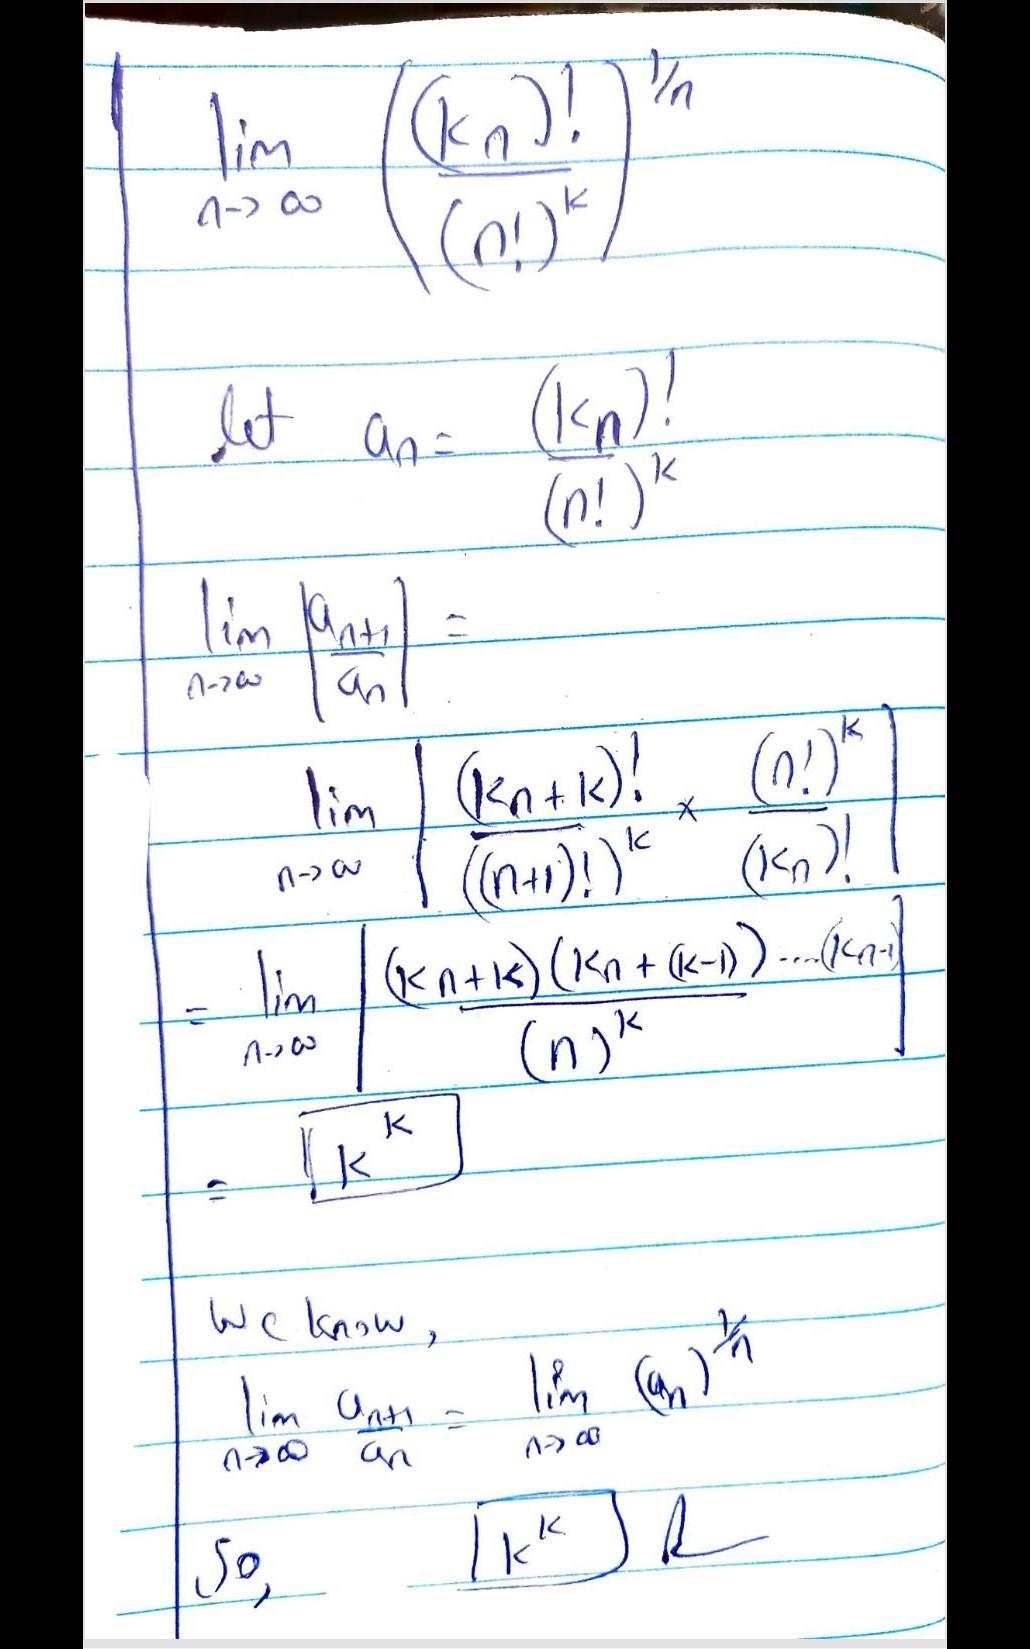 lim n->∞ ((kn)!/(n!)^k)^1/n
let an = (kn)!/(n!)^k
lim n->∞ |an+1/an| =
lim n->∞ |(kn+k)!/((n+1)!)^k × (n!)^k/(kn)!|
= lim n->∞ |(kn+k)(kn+(k-1))....(kn-1)/(n)^k|
= k^k
We know,
lim n->∞ an+1/an = lim n->∞ (an)^1/n
So, k^k